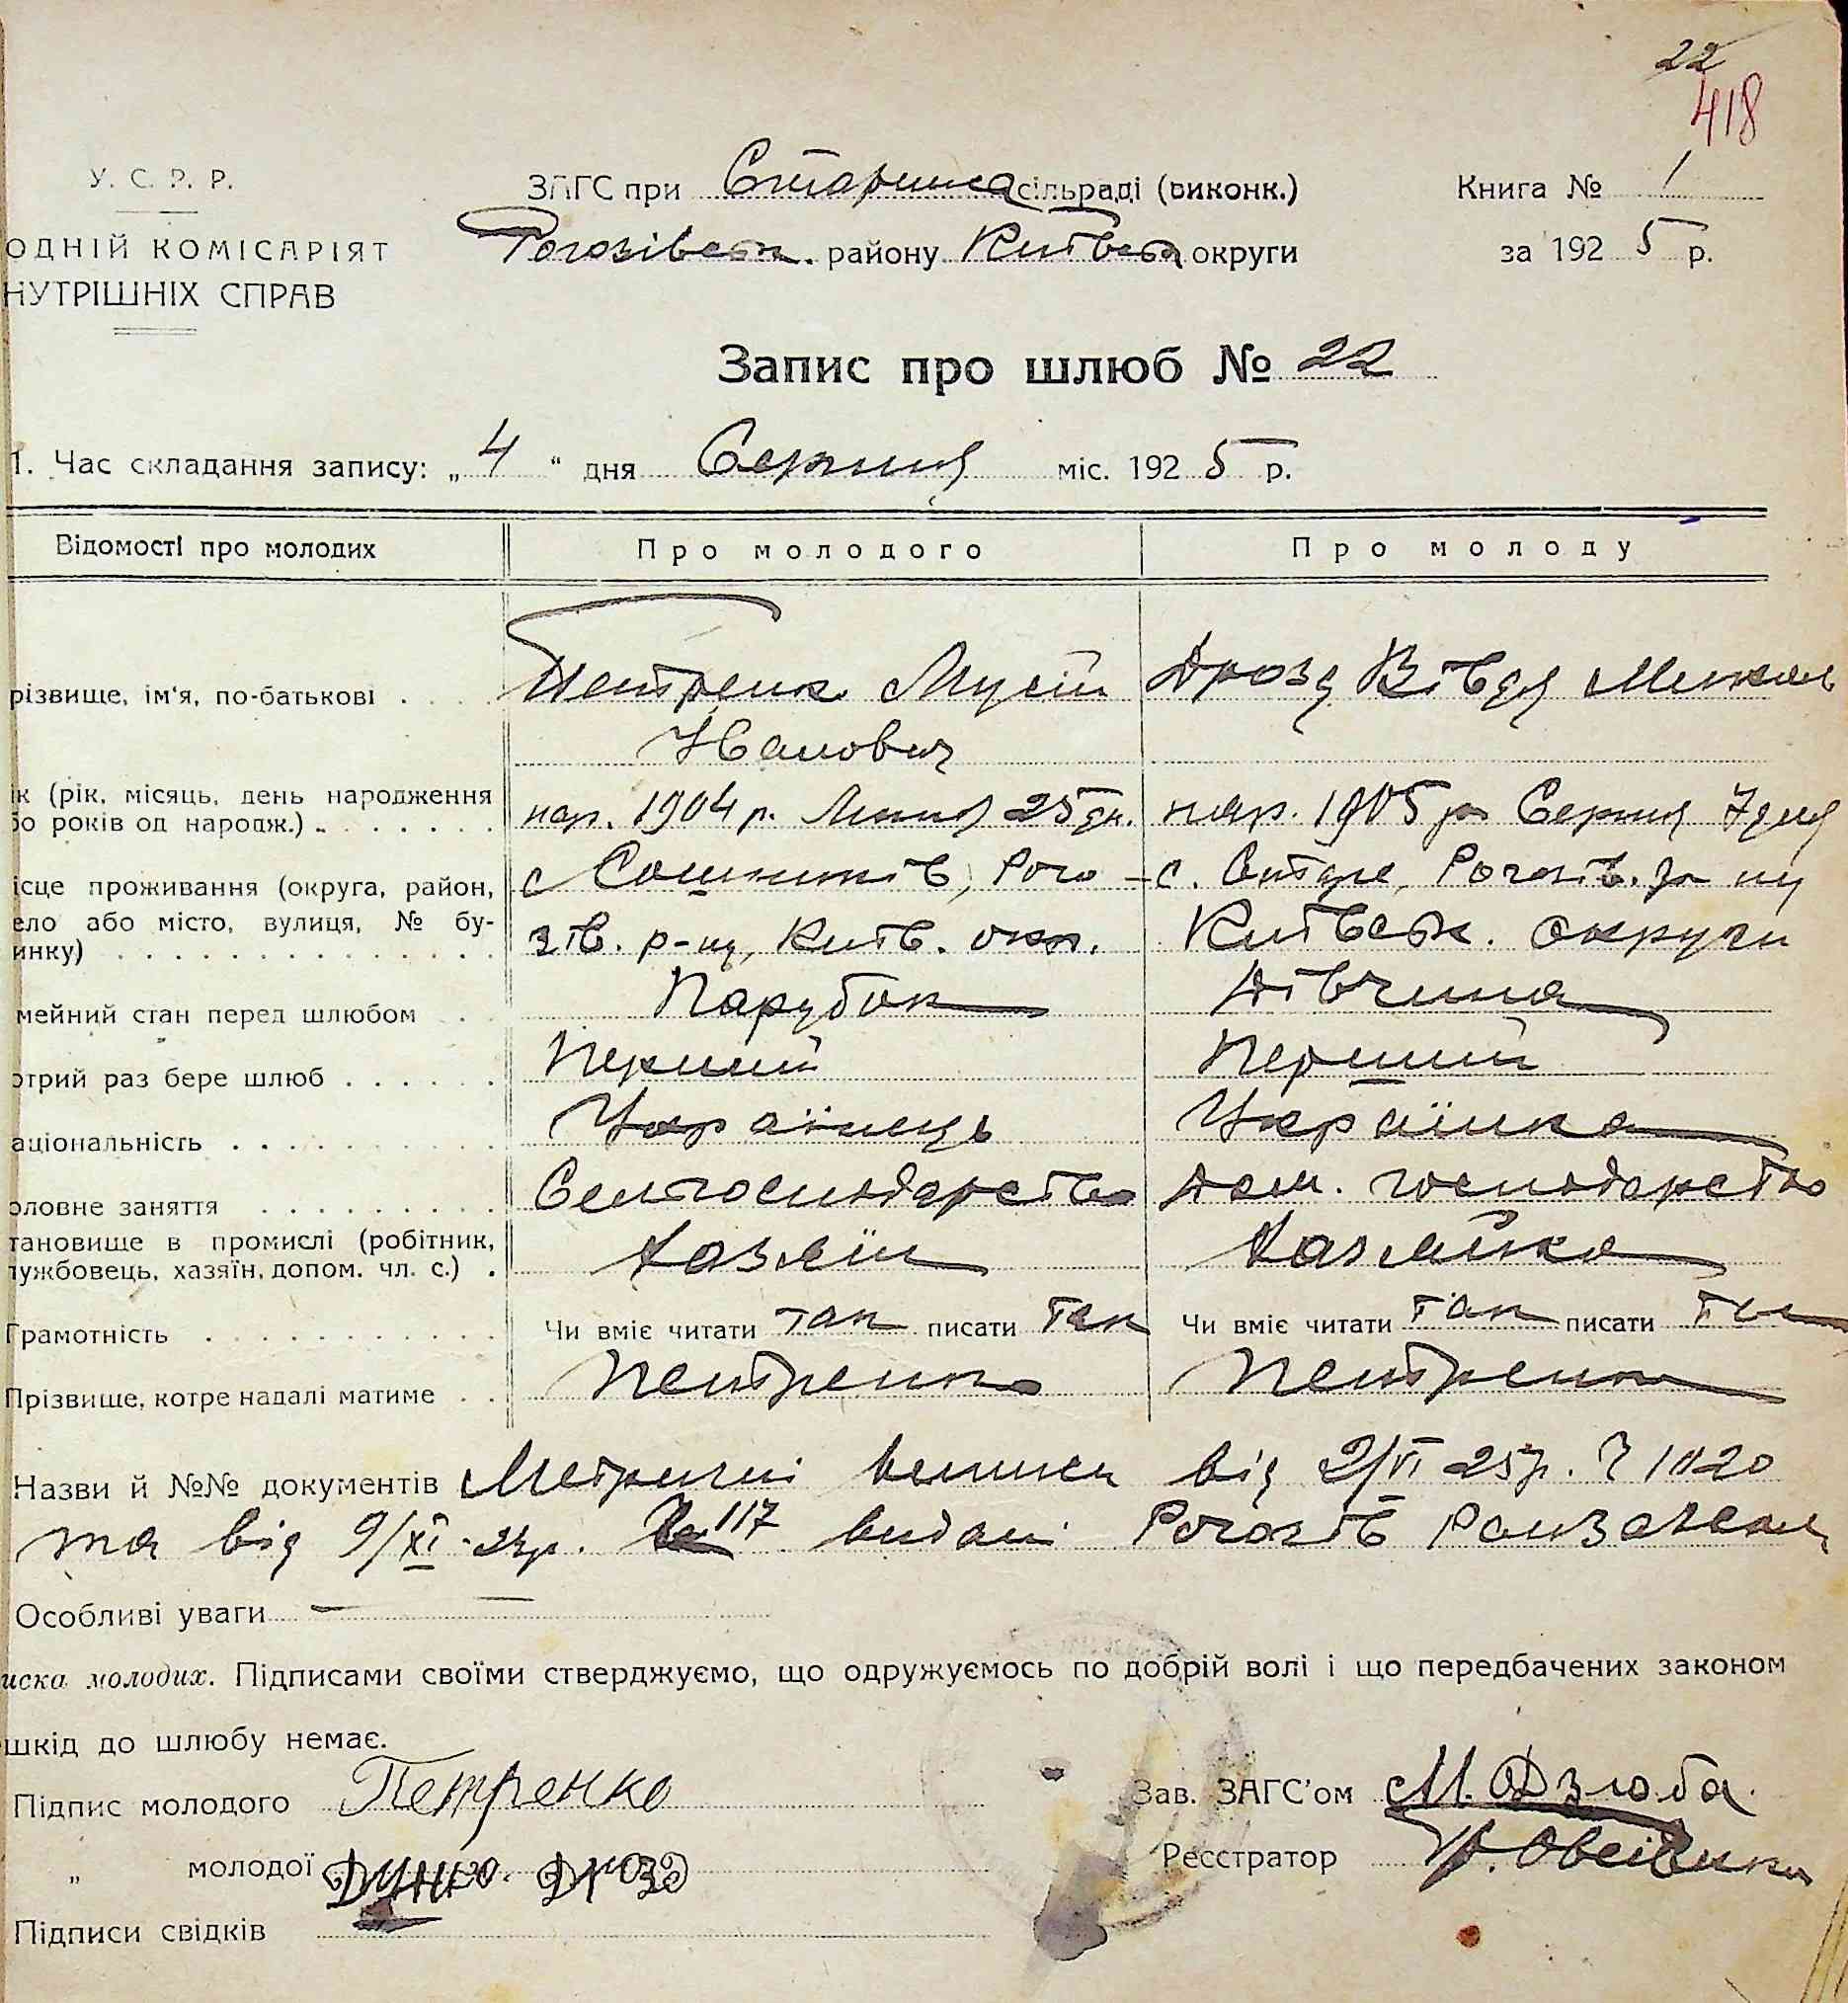 22
418
У. С. Р. Р.
ОДНІЙ КОМІСАРІЯТ
НУТРІШНІХ СПРАВ
ЗАГС при сільраді (виконк.)
Рогозівськ. району Київськ округи
Книга № 1
за 192 5 р.
Запис про шлюб № 22
1. Час складання запису: „ 4 “ дня Серпня міс. 192 5 р.
Відомості про молодих Про молодого Про молоду
різвище, ім'я, по-батькові . Петренк Мусій Дрозд Вівдя
Іванович
ік (рік, місяць, день народження нар. 1904 р. 25 дн. нар. 1905 р Серпня 7 дня
бо років од народж.)
ісце проживання (округа, район, с Сошників, Рого- с. Старе, Рогозів. р-ну
ело або місто, вулиця, № бу- зів. р-ну, Київ. окр. Київськ. округи
инку)
мейний стан перед шлюбом Парубок Дівчина
отрий раз бере шлюб Перший Перший
аціональність Українець Українка
оловне заняття Сельгосподарство Дом. господарство
тановище в промислі (робітник, Хазяїн Хазяйка
лужбовець, хазяїн, допом. чл. с.) .
Грамотність Чи вміє читати так писати так Чи вміє читати так писати так
Прізвище, котре надалі матиме Петренко Петренко
Назви й №№ документів Метричні виписи від 2/VI 25р. 1020
та від 9/XI 117 видані Рогозів
Особливі уваги —
иска молодих. Підписами своїми стверджуємо, що одружуємось по добрій волі і що передбачених законом
шкід до шлюбу немає.
Підпис молодого Петренко
„ молодої Дрозд
Підписи свідків
Зав. ЗАГС'ом М. Дзюба.
Реєстратор